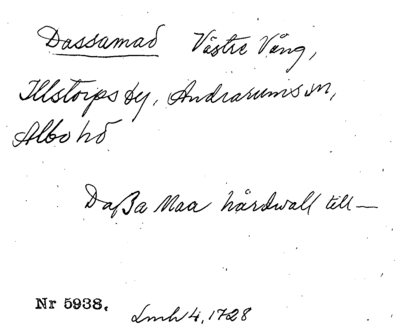 Dassamad Västre Vång,
Illstorps by, Andrarums sn,
Albo hd
Daßa Maa hårdwall till—
Nr 5938. Lmh 4, 1728